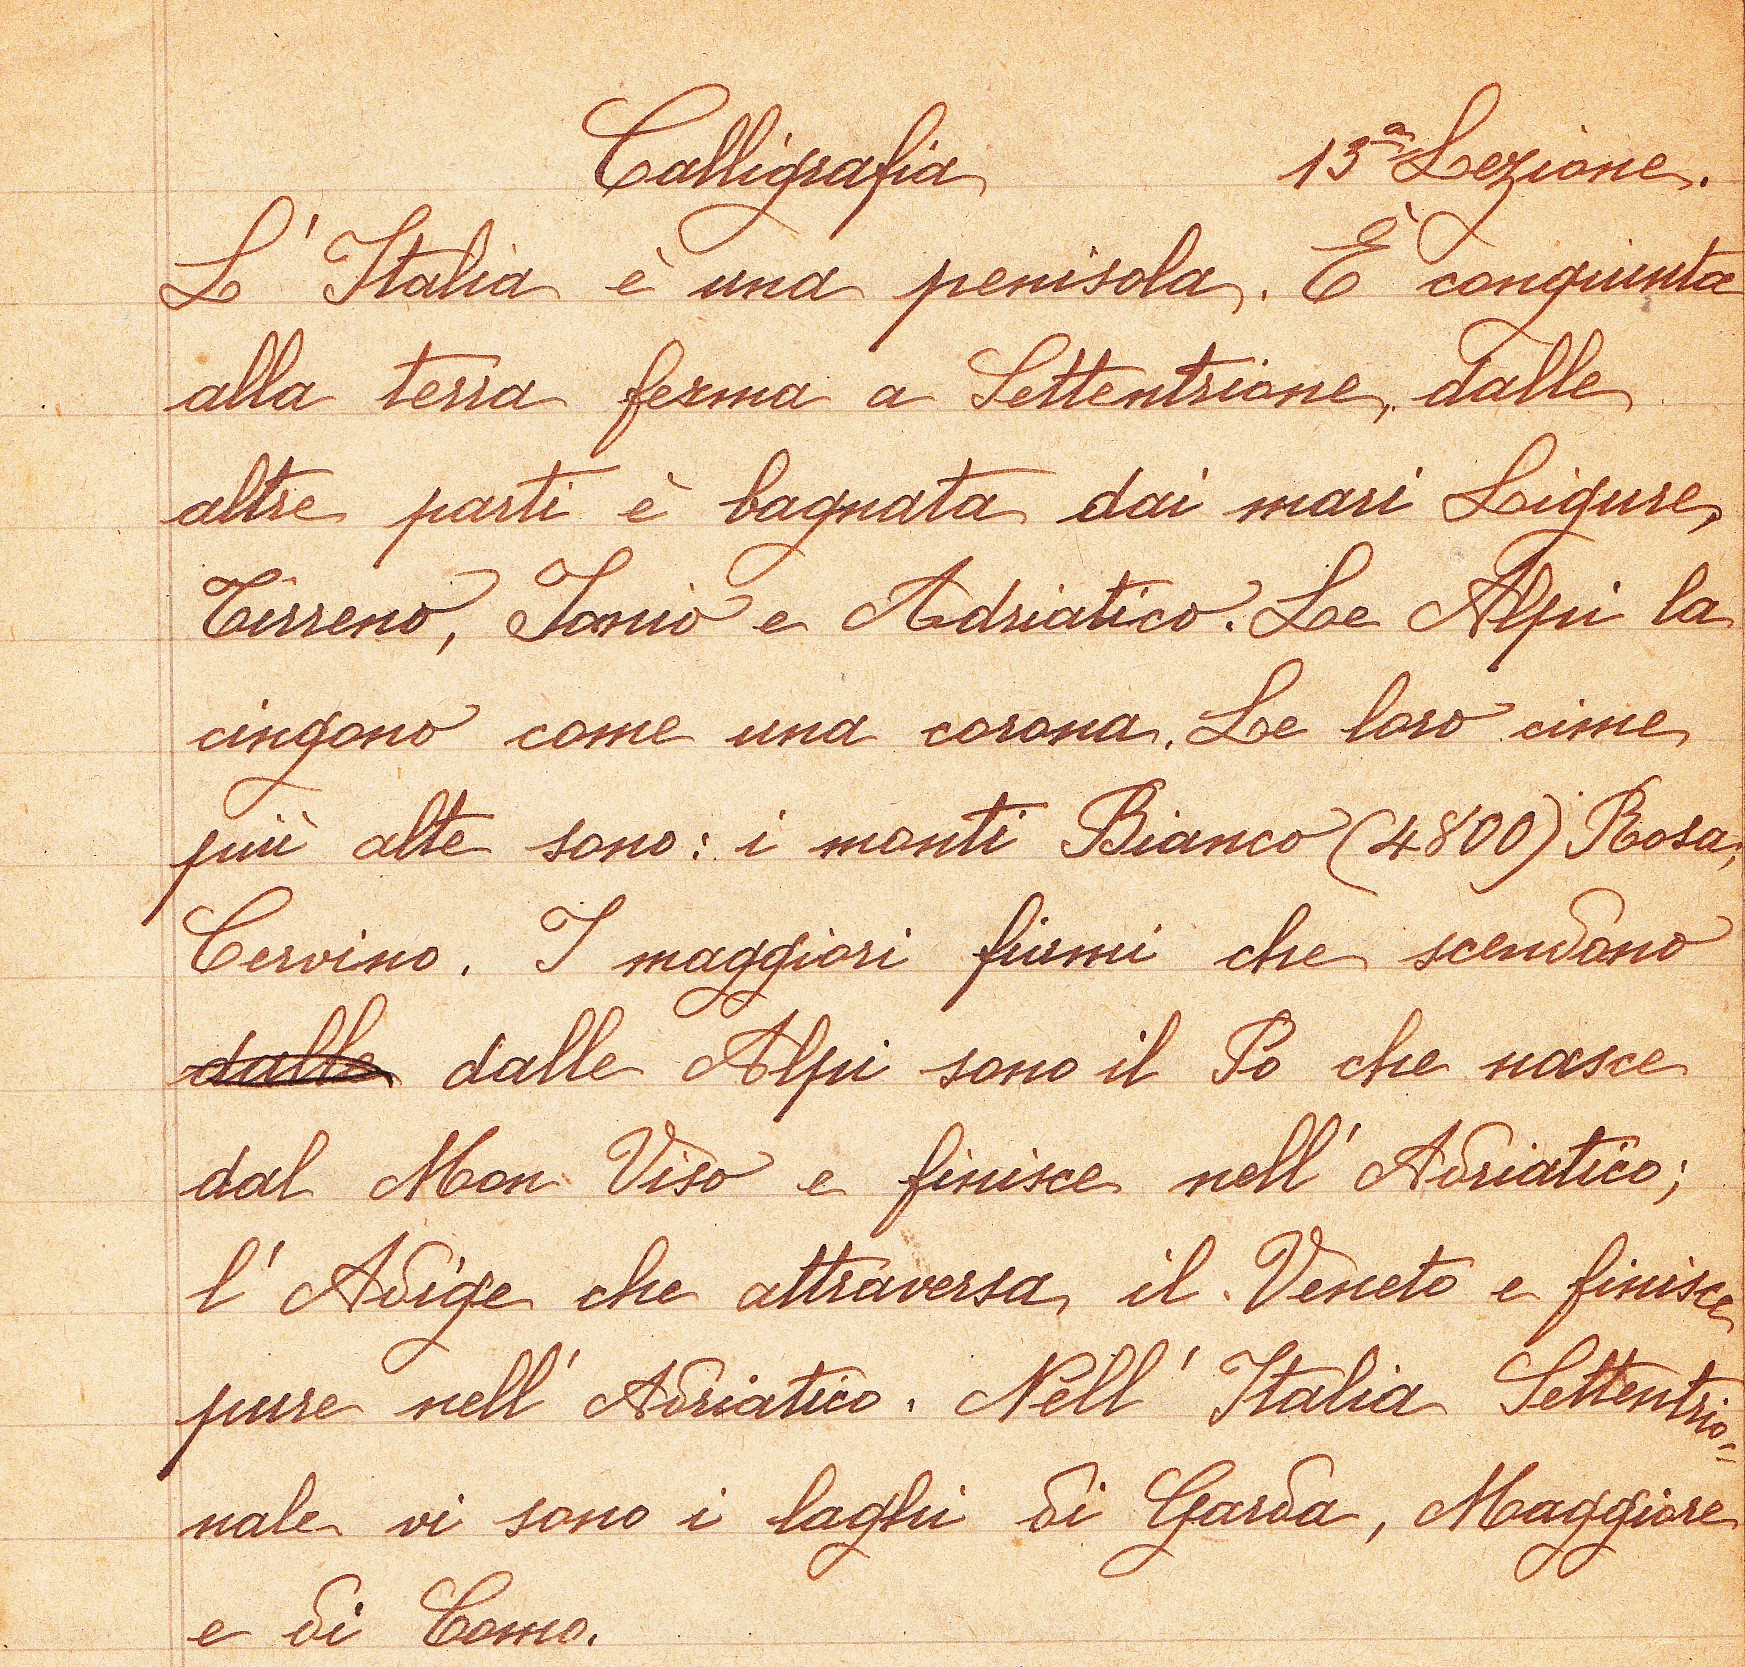 Calligrafia 13ª Lezione.
L'Italia è una penisola. È congiunta
alla terra ferma a Settentrione, dalle
altre parti è bagnata dai mari Ligure,
Tirreno, Ionio e Adriatico. Le Alpi la
cingono come una corona. Le loro cime
più alte sono: i monti Bianco (4800) Rosa,
Cervino. I maggiori fiumi che scendono
dalle dalle Alpi sono il Po che nasce
dal Mon Viso e finisce nell'Adriatico;
l'Adige che attraversa il Veneto e finisce
pure nell'Adriatico. Nell'Italia Settentrio=
nale vi sono i laghi di Garda, Maggiore
e di Como.